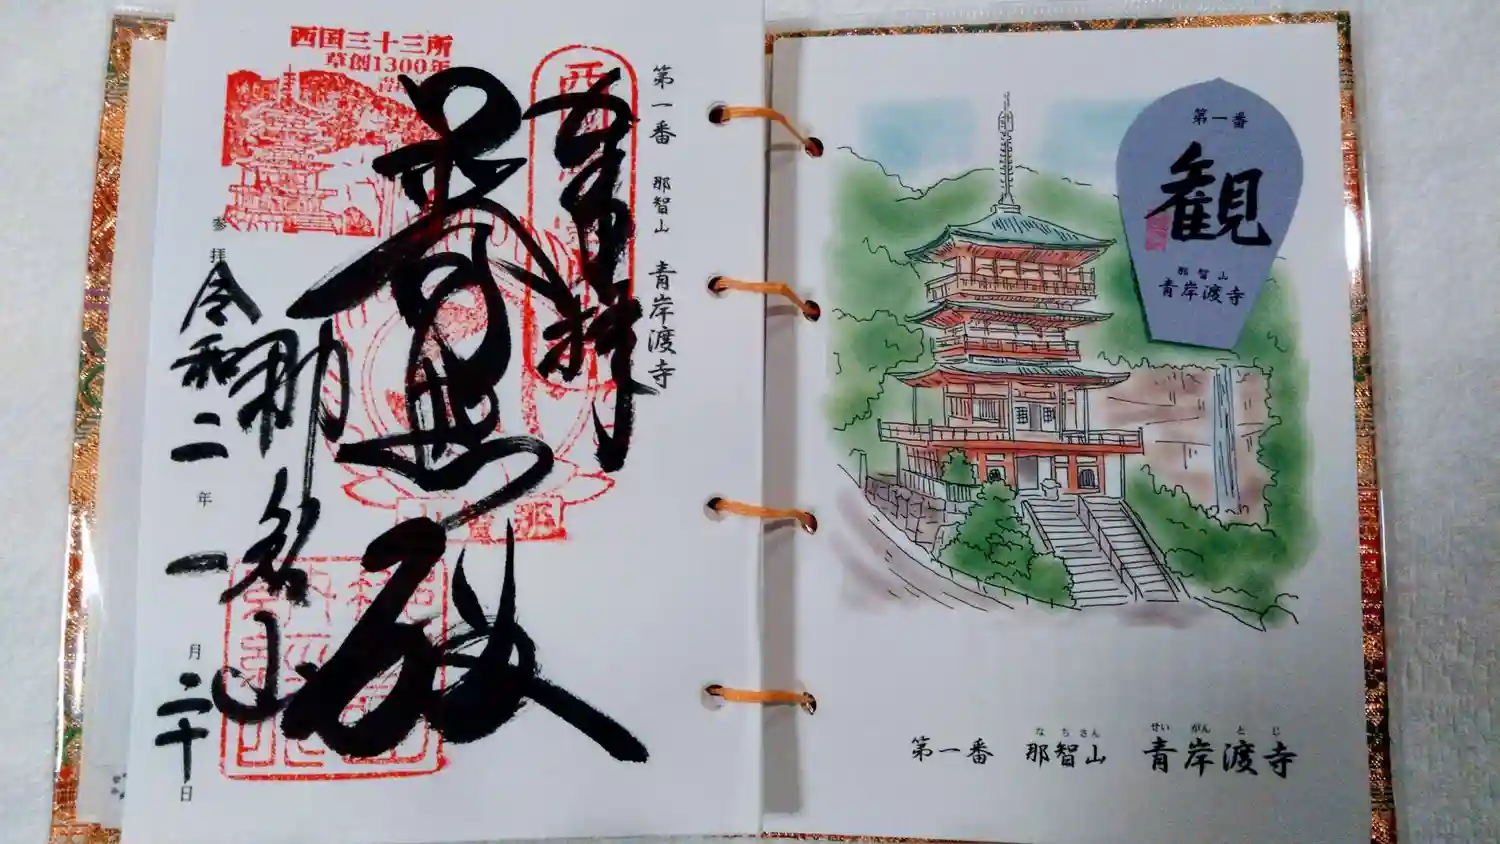 西国三十三所
草創1300年
第一番 那智山 青岸渡寺
奉拝
普照殿
那智山
参拝
令和二年一月二十日
第一番
観
那智山
青岸渡寺
なちさん せいがんとじ
第一番 那智山 青岸渡寺